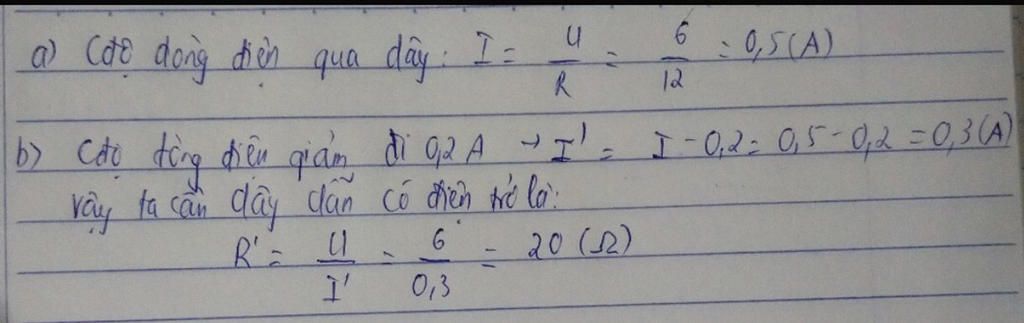 a) Cđộ dòng điện qua dây: I = U/R = 6/12 = 0,5(A)
b) Cđộ dòng điện giảm đi 0,2A → I' = I - 0,2 = 0,5 - 0,2 = 0,3(A)
vậy ta cần dây dẫn có điện trở là:
R' = U/I' = 6/0,3 = 20 (Ω)